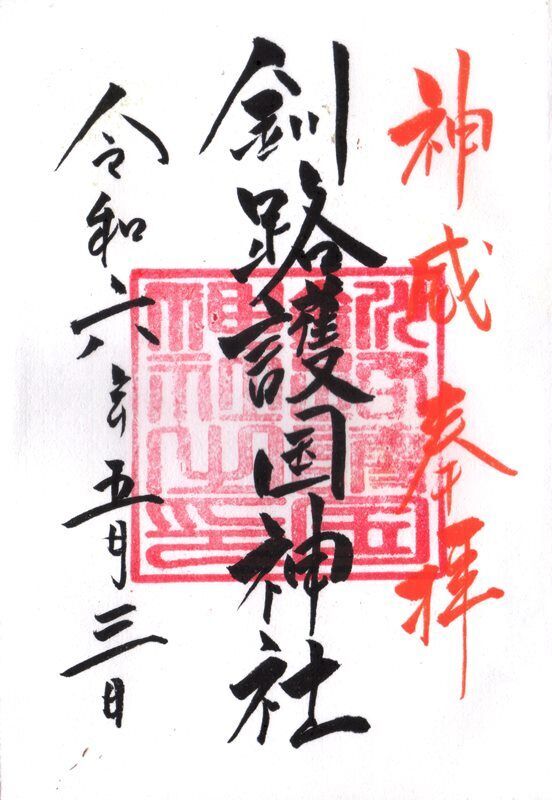 神威奉拝
釧路護国神社
令和六年五月三日